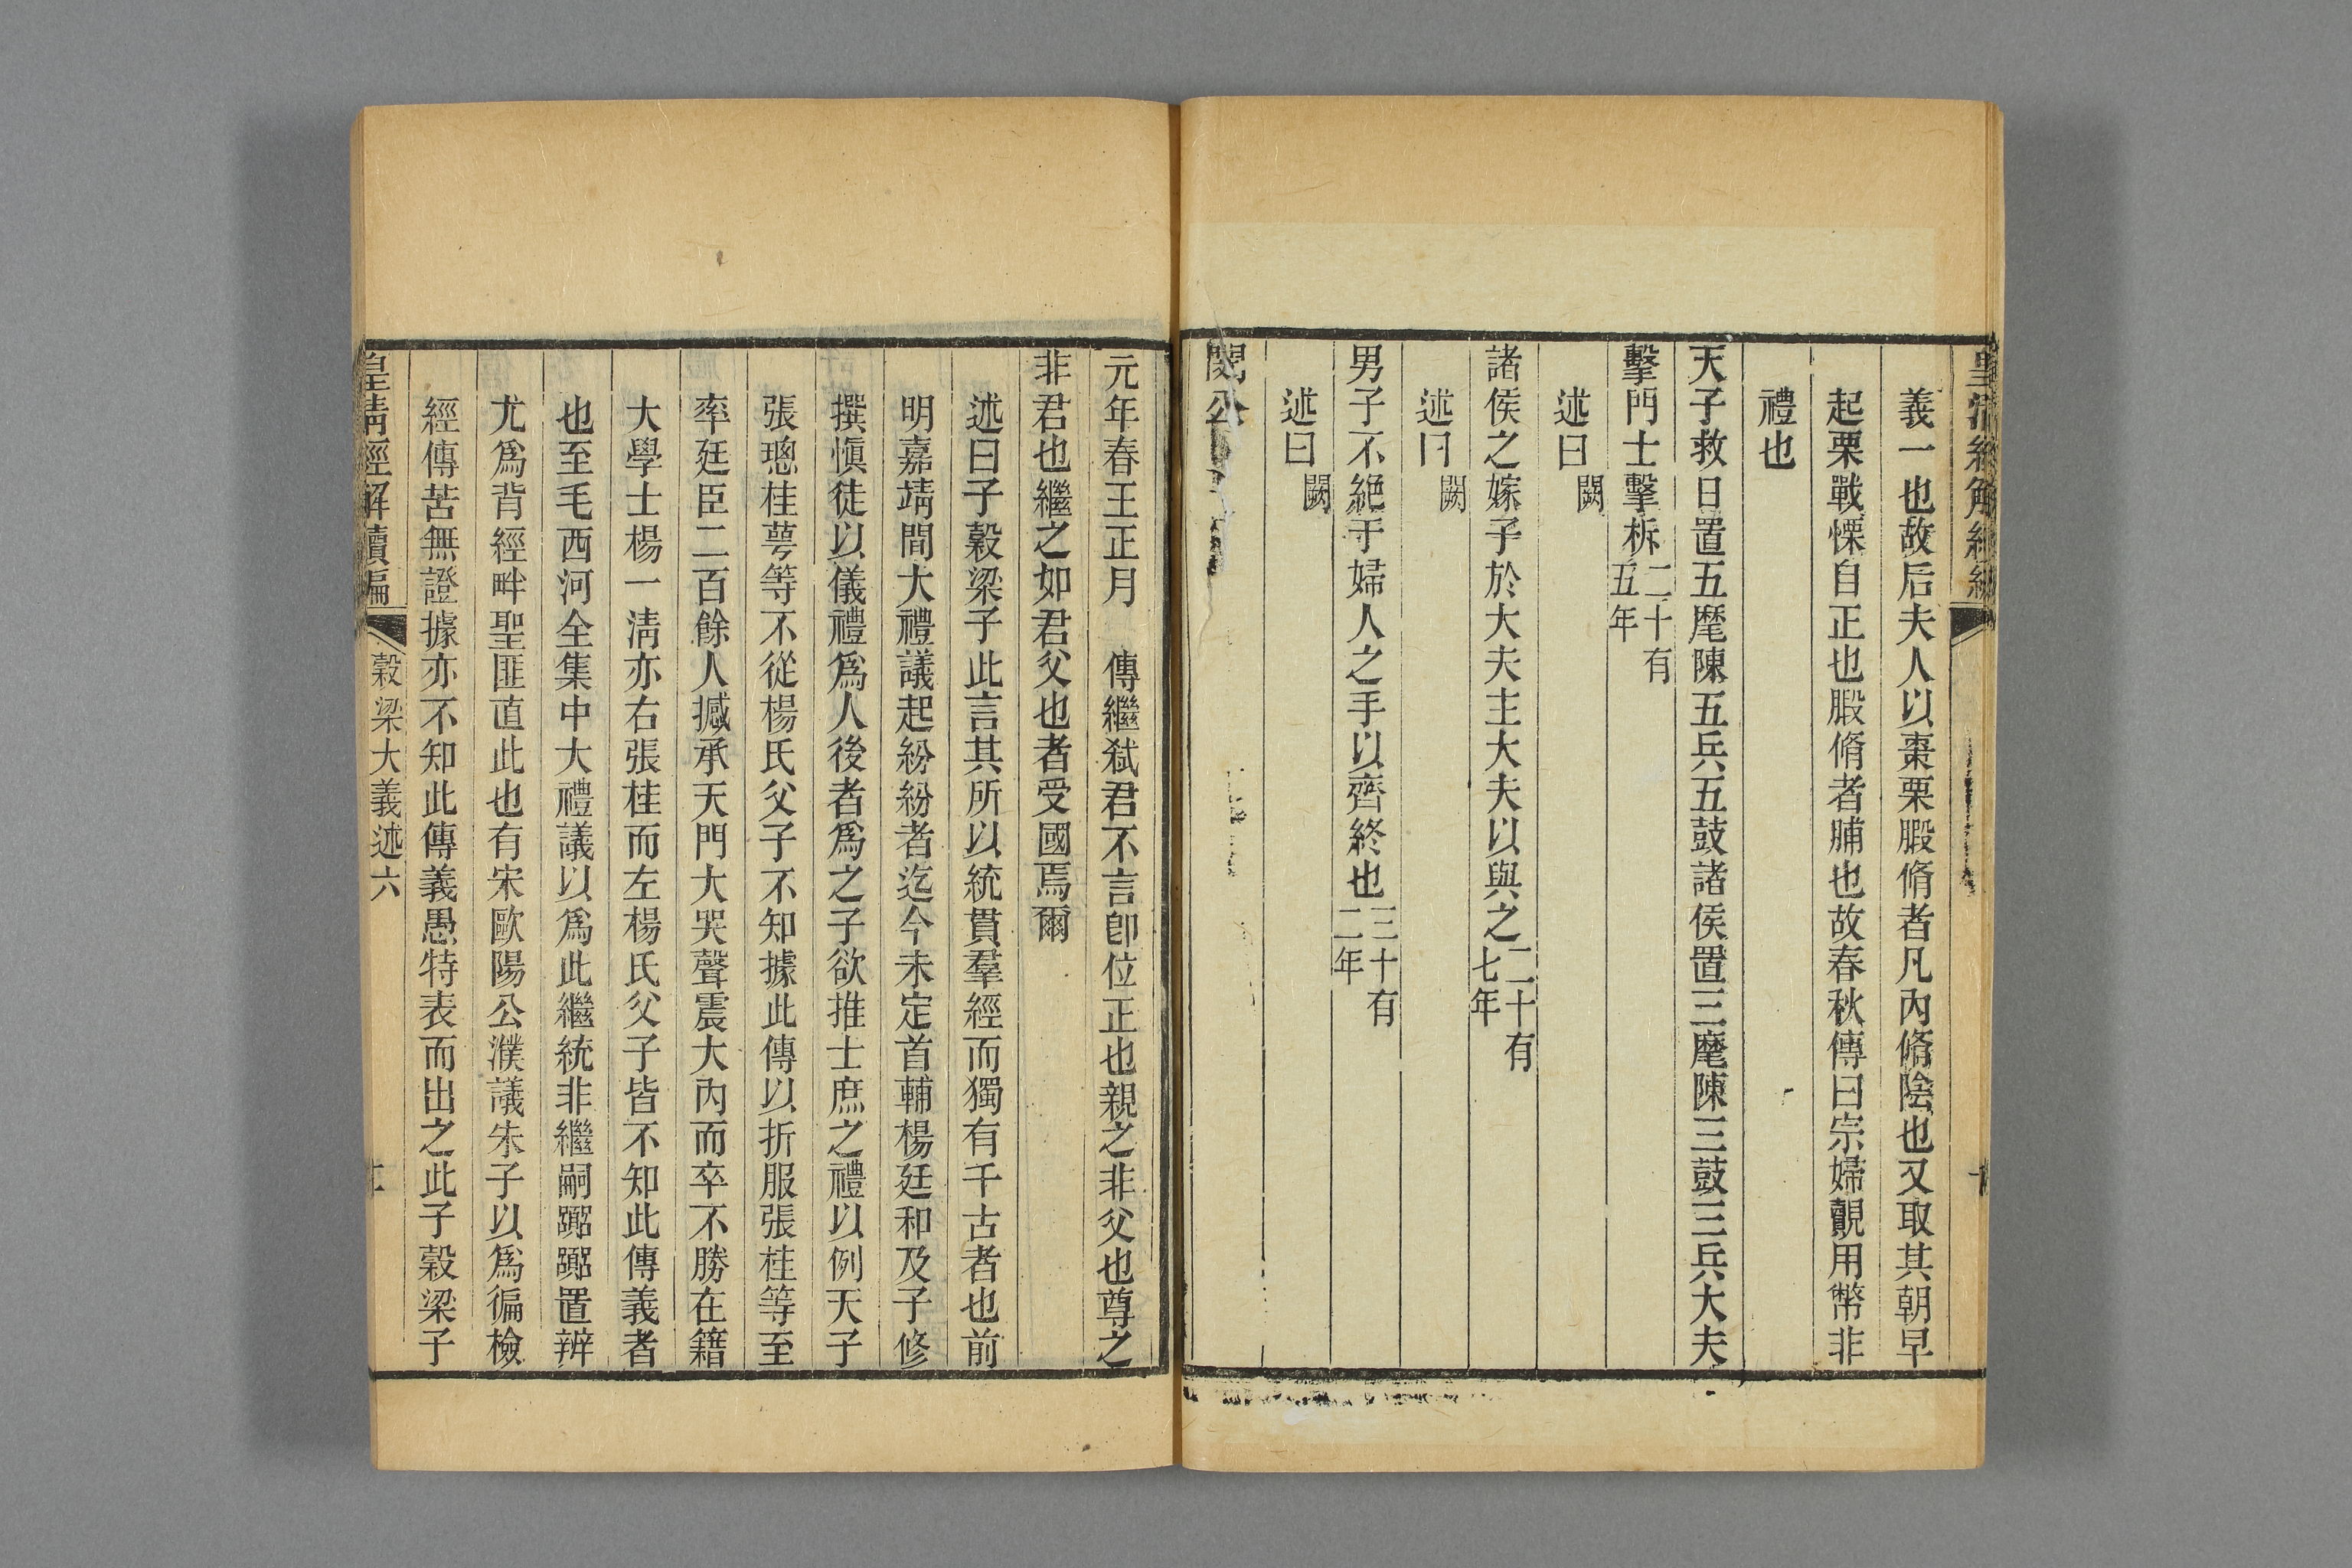 皇清經解續編
義一也故后夫人以棗栗腶脩者凡內脩陰也又取其朝早
起栗戰慄自正也腶脩者脯也故春秋傳曰宗婦覿用幣非
禮也
天子救日置五麾陳五兵五鼓諸侯置三麾陳三鼓三兵大夫
擊門士擊柝二十有五年
述曰闕
諸侯之嫁子於大夫主大夫以與之二十有七年
述曰闕
男子不絕于婦人之手以齊終也三十有二年
述曰闕
閔公
元年春王正月　傳繼弒君不言卽位正也親之非父也尊之
非君也繼之如君父也者受國焉爾
述曰子穀梁子此言其所以統貫羣經而獨有千古者也前
明嘉靖間大禮議起紛紛者迄今未定首輔楊廷和及子修
撰愼徒以儀禮爲人後者爲之子欲推士庶之禮以例天子
張璁桂萼等不從楊氏父子不知據此傳以折服張桂等至
率廷臣二百餘人撼承天門大哭聲震大內而卒不勝在籍
大學士楊一清亦右張桂而左楊氏父子皆不知此傳義者
也至毛西河全集中大禮議以爲此繼統非繼嗣躑躑置辨
尤爲背經畔聖匪直此也有宋歐陽公濮議朱子以爲徧檢
經傳苦無證據亦不知此傳義愚特表而出之此子穀梁子
皇清經解續編
穀梁大義述六